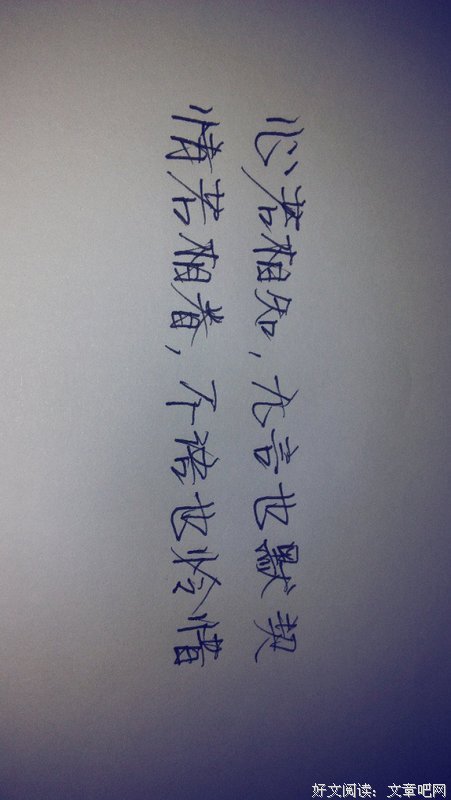 心若相知，无言也默契
情若相眷，不语也怜惜
好文阅读：文章吧网